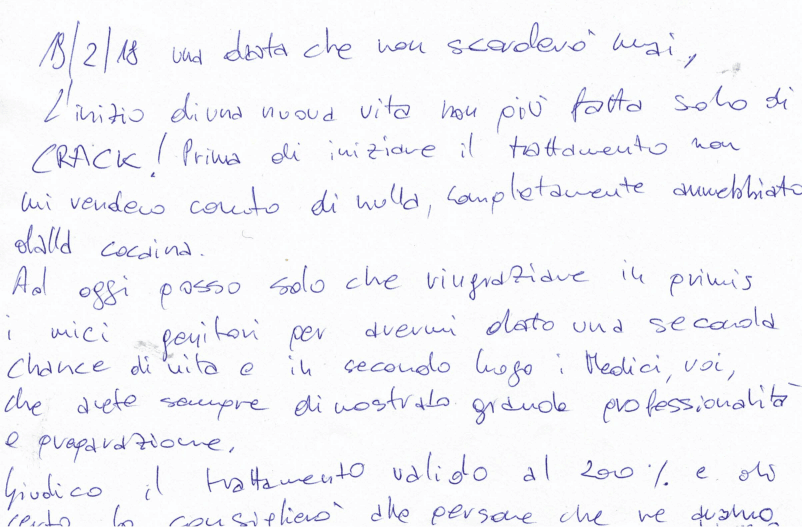 19/2/18 una data che non scorderò mai,
L'inizio di una nuova vita non più fatta solo di
CRACK! Prima di iniziare il trattamento non
mi rendevo conto di nulla, completamente annebbiato
dalla cocaina.
Ad oggi posso solo che ringraziare in primis
i miei genitori per avermi dato una seconda
chance di vita e in secondo luogo i Medici, voi,
che avete sempre dimostrato grande professionalità
e preparazione.
Giudico il trattamento valido al 200% e di
certo lo consiglierò alle persone che ne avranno